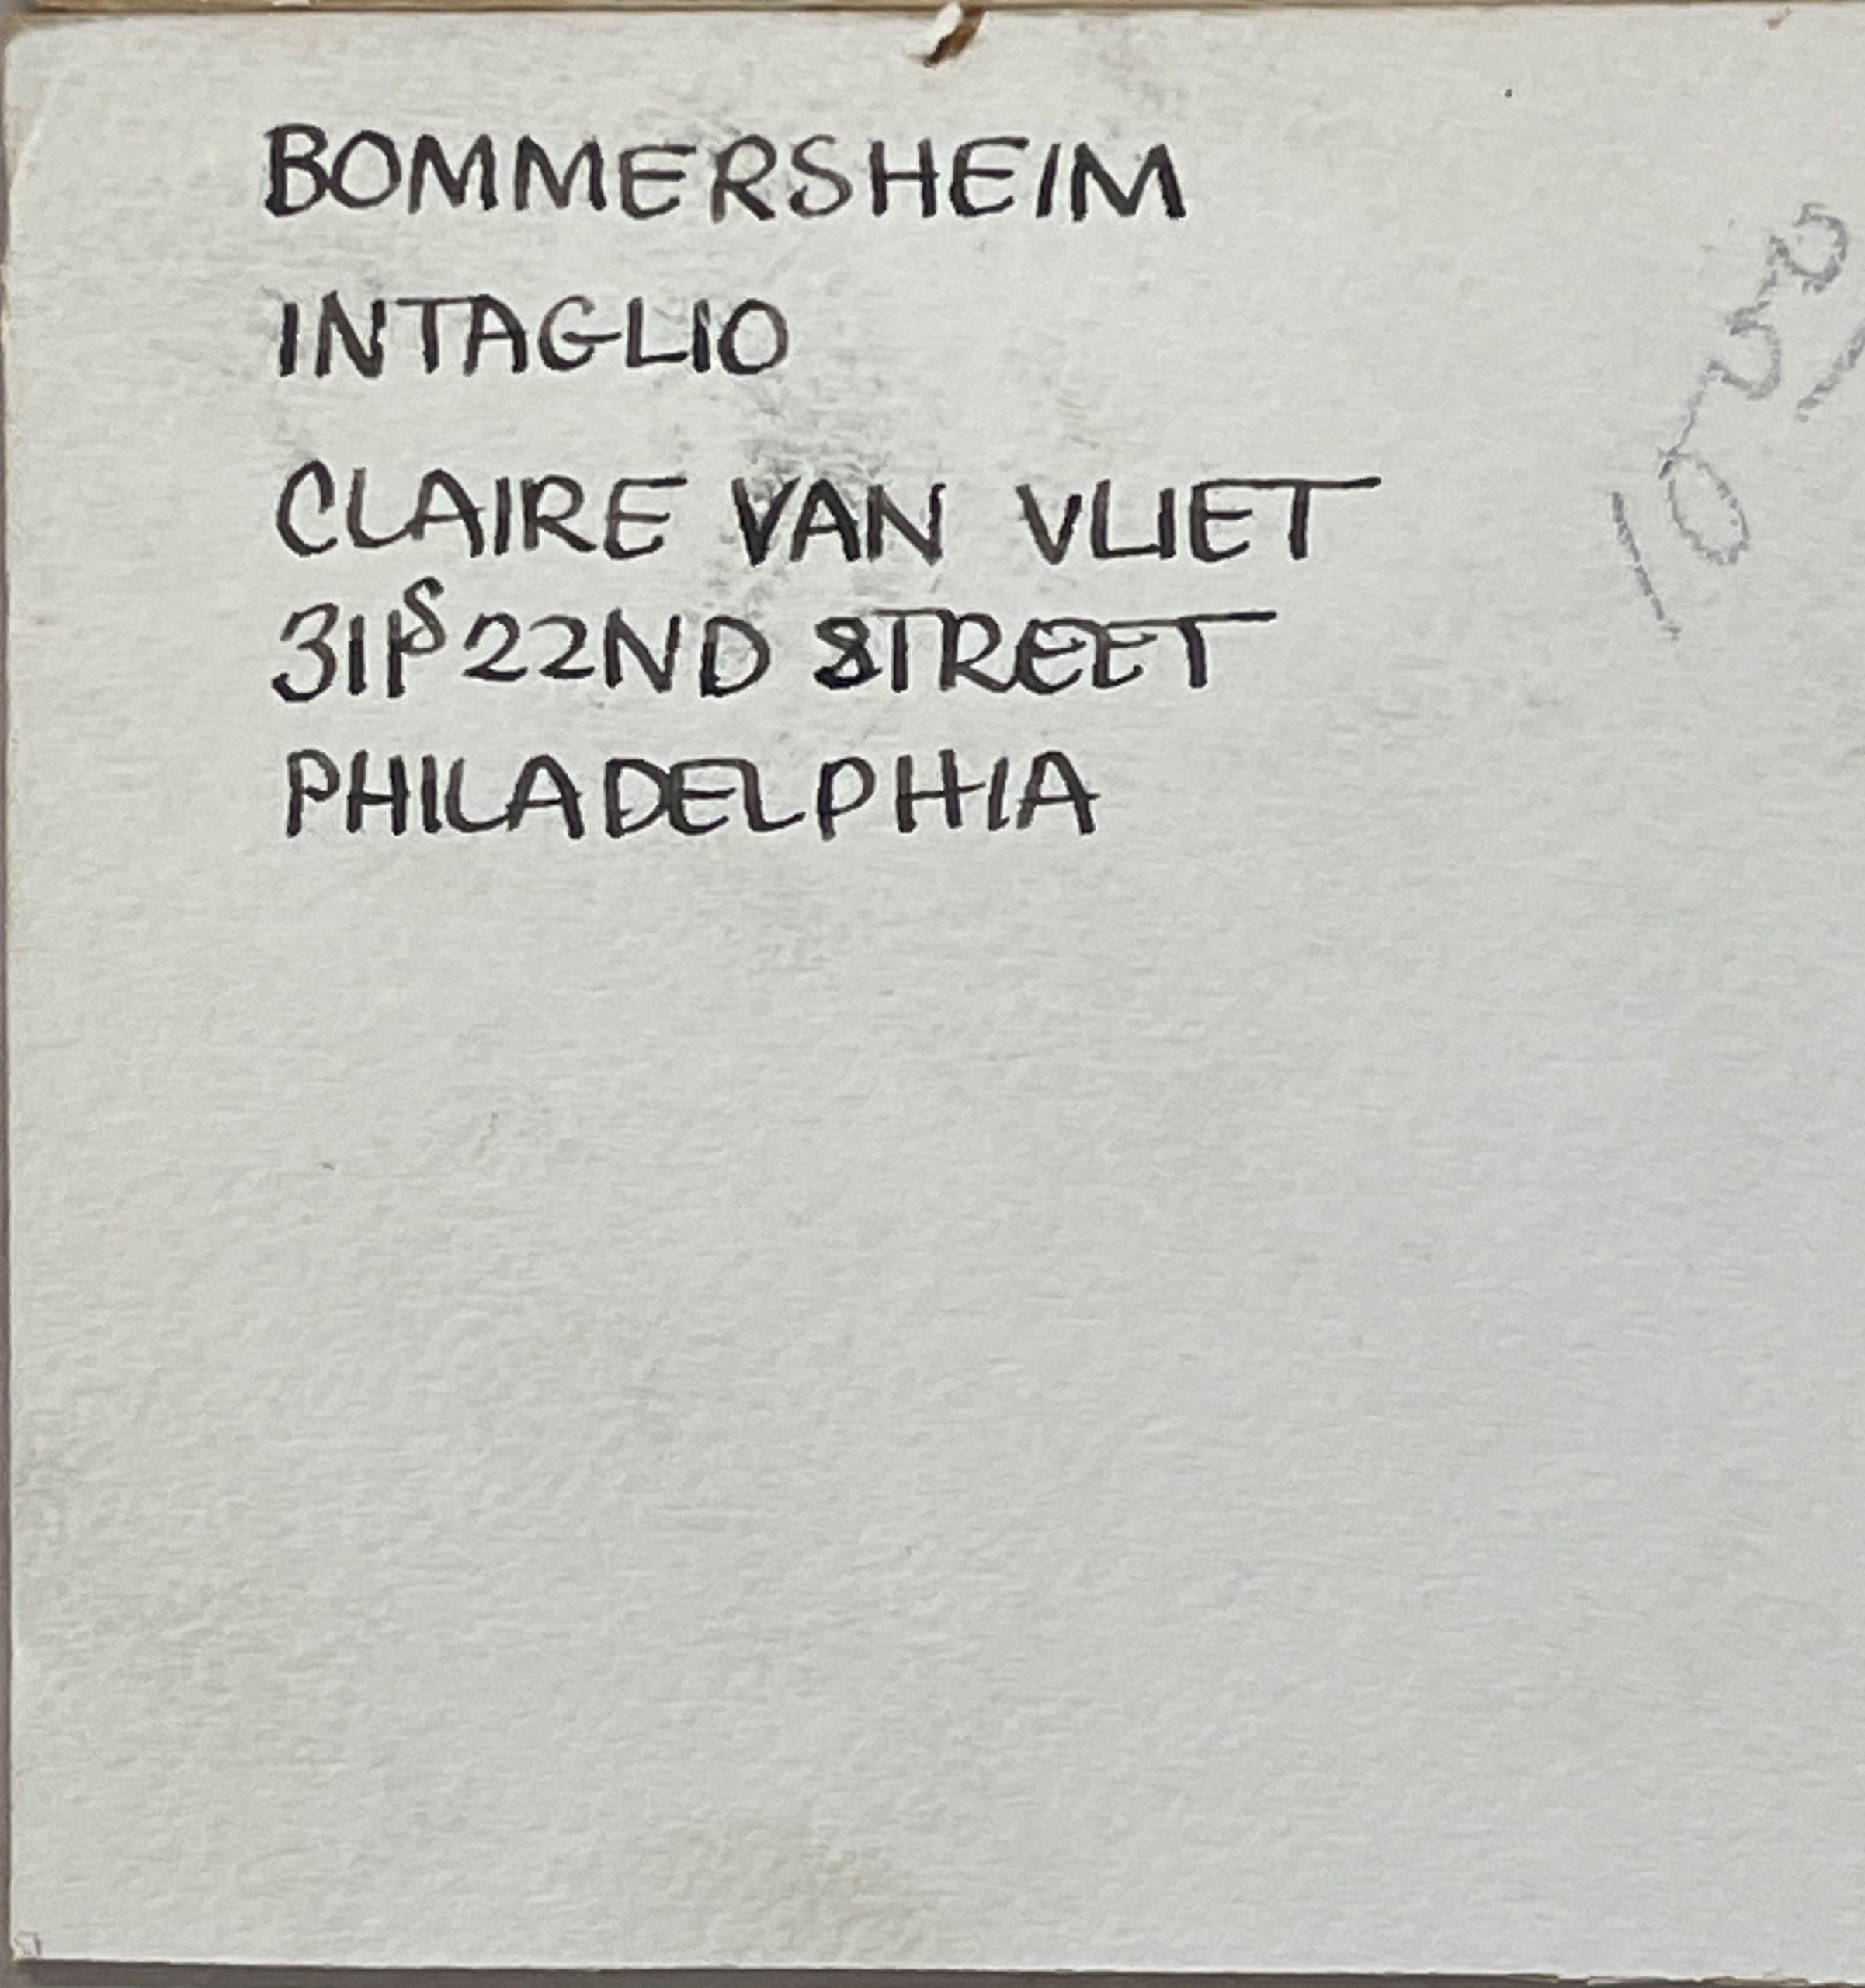 BOMMERSHEIM
INTAGLIO
CLAIRE VAN VLIET
311 S 22ND STREET
PHILADELPHIA